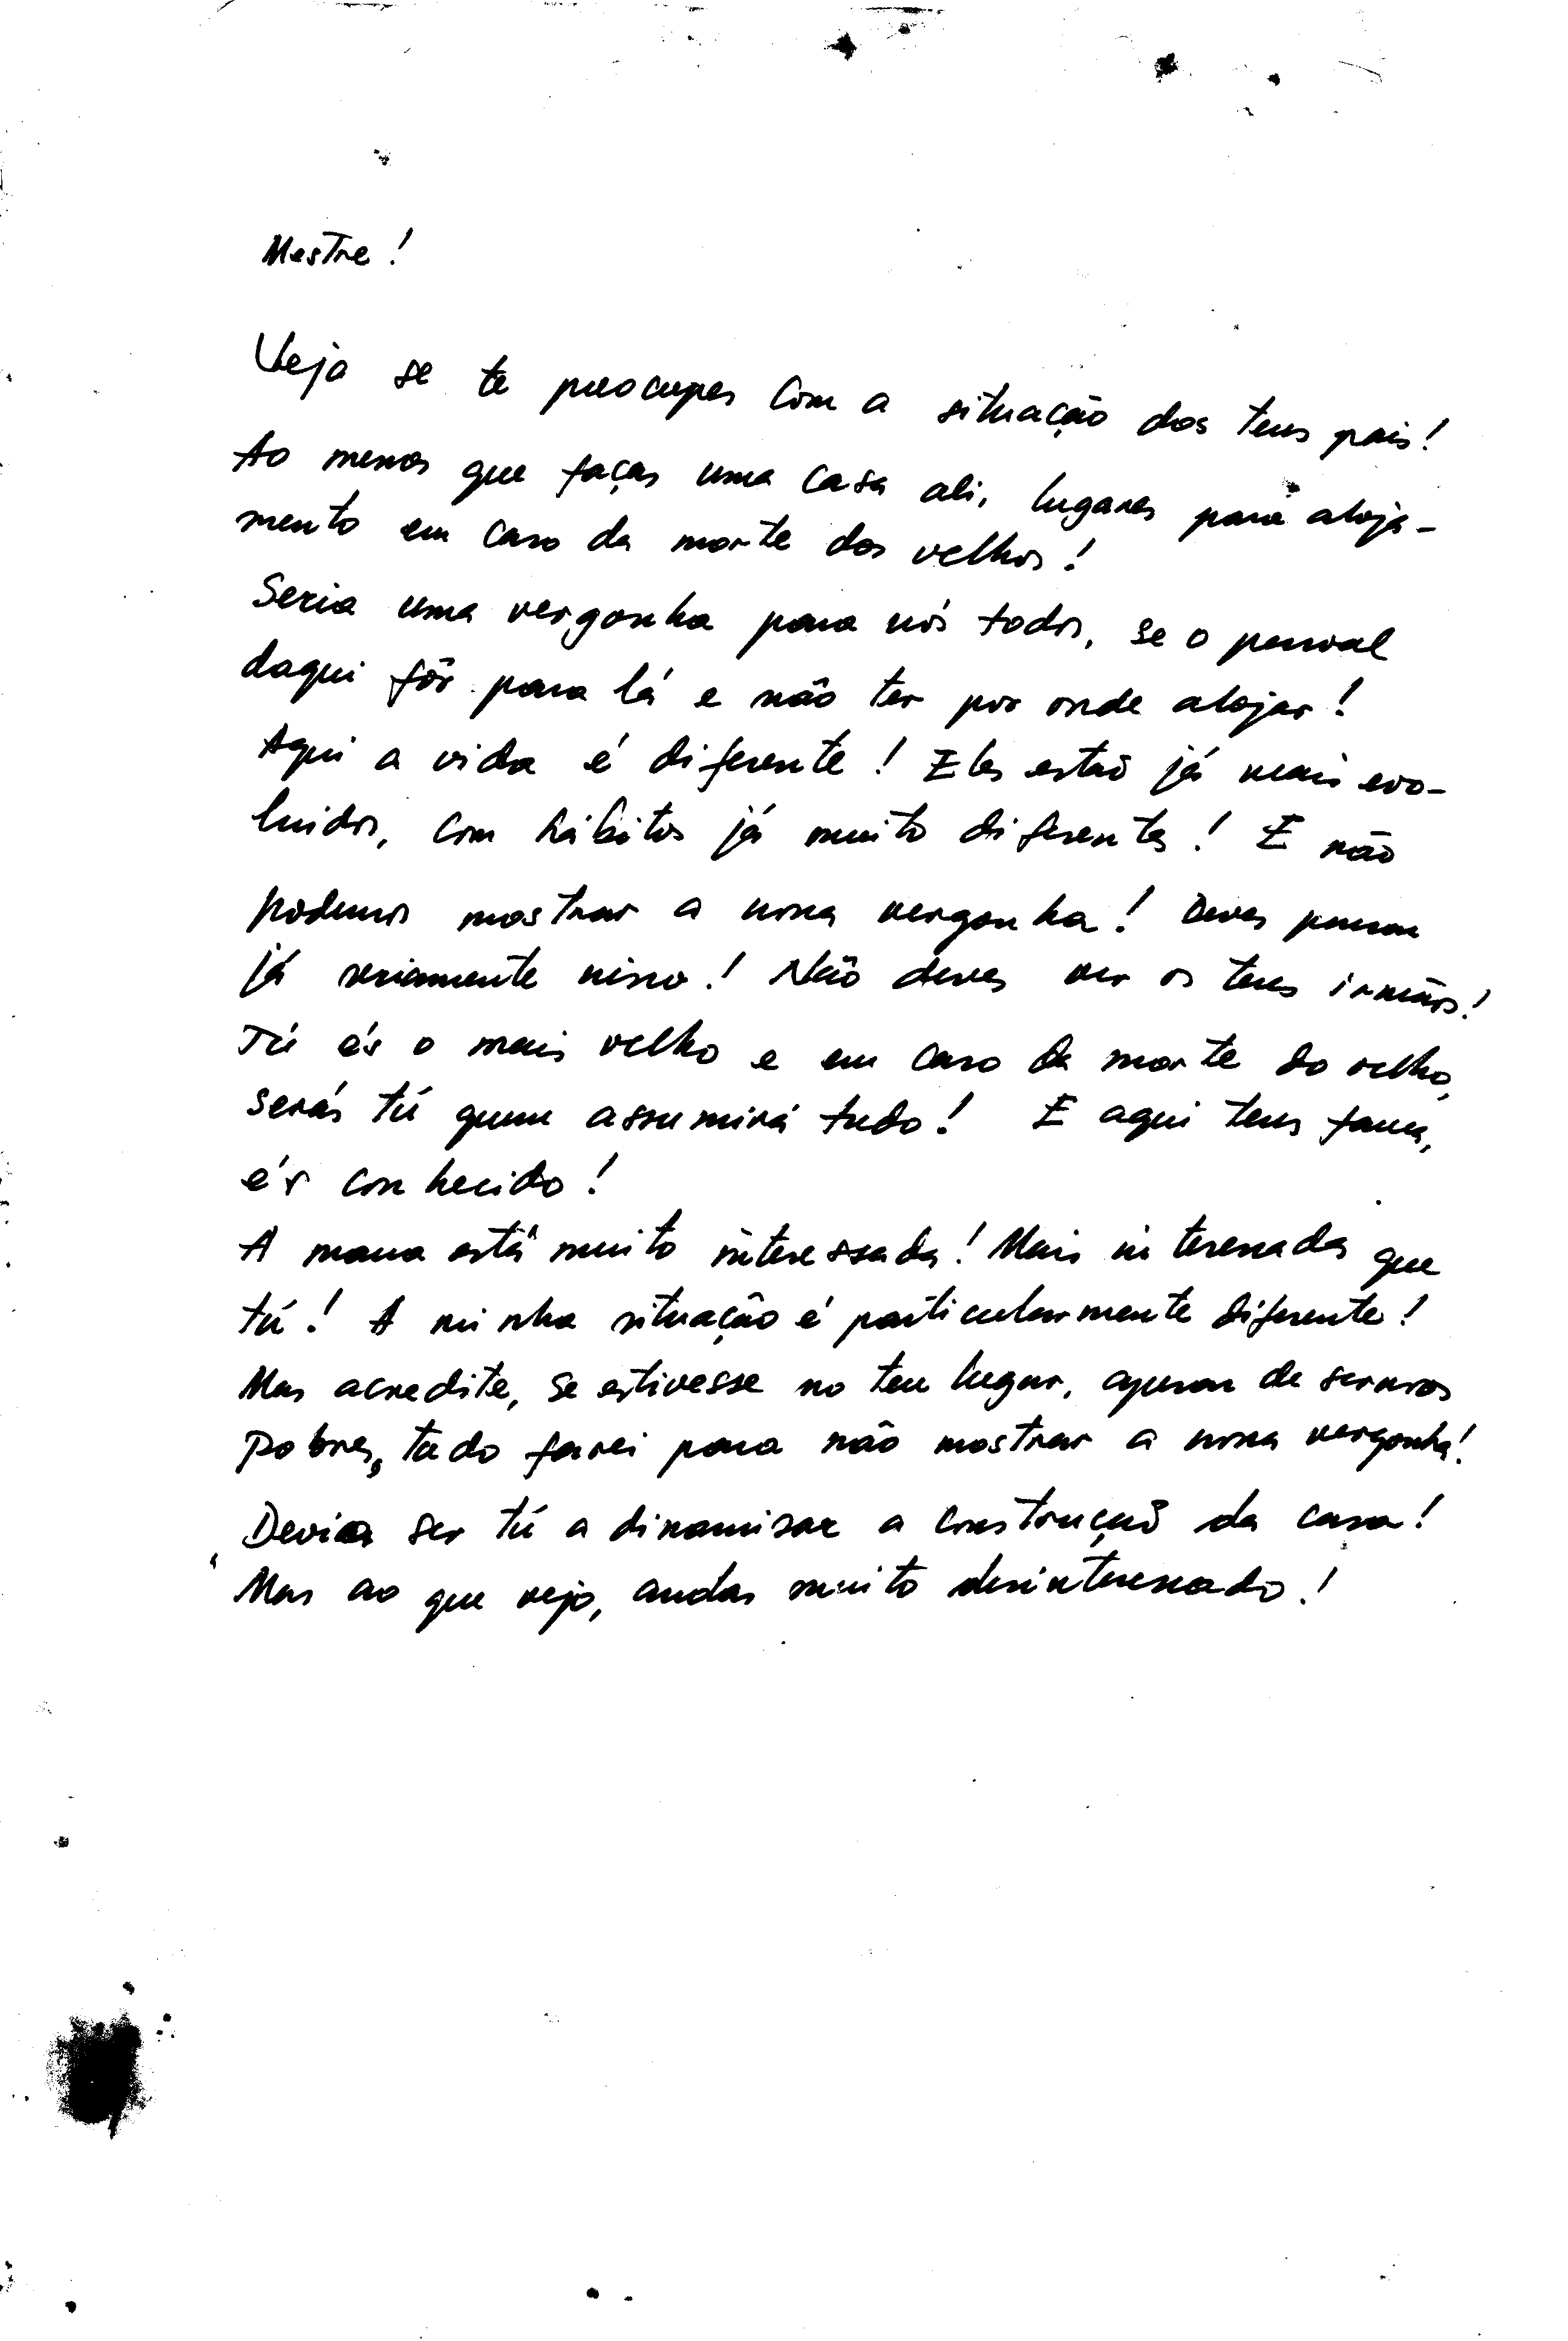 Mestre!
Veja se te preocupes com a situação dos teus pais!
Ao menos que faças uma casa ali, lugares para aloja-
mento em caso da morte dos velhos!
Seria uma vergonha para nós todos, se o pessoal
daqui fôr para lá e não ter por onde alojar!
Aqui a vida é diferente! Eles estão já mais evo-
luidos, com hábitos já muito diferentes! E não
podemos mostrar a nossa vergonha! Deves pensar
já seriamente nisso! Não deves ver os teus irmãos!
Tú és o mais velho e em caso da morte do velho,
serás tú quem assumirá tudo! E aqui tens fama,
és conhecido!
A mana está muito interessada! Mais interessada que
tú! A minha situação é particularmente diferente!
Mas acredite, se estivesse no teu lugar, apesar de sermos
pobres, tudo farei para não mostrar a nossa vergonha!
Devias ser tú a dinamizar a construção da casa!
Mas ao que vejo, andas muito desinteressado!